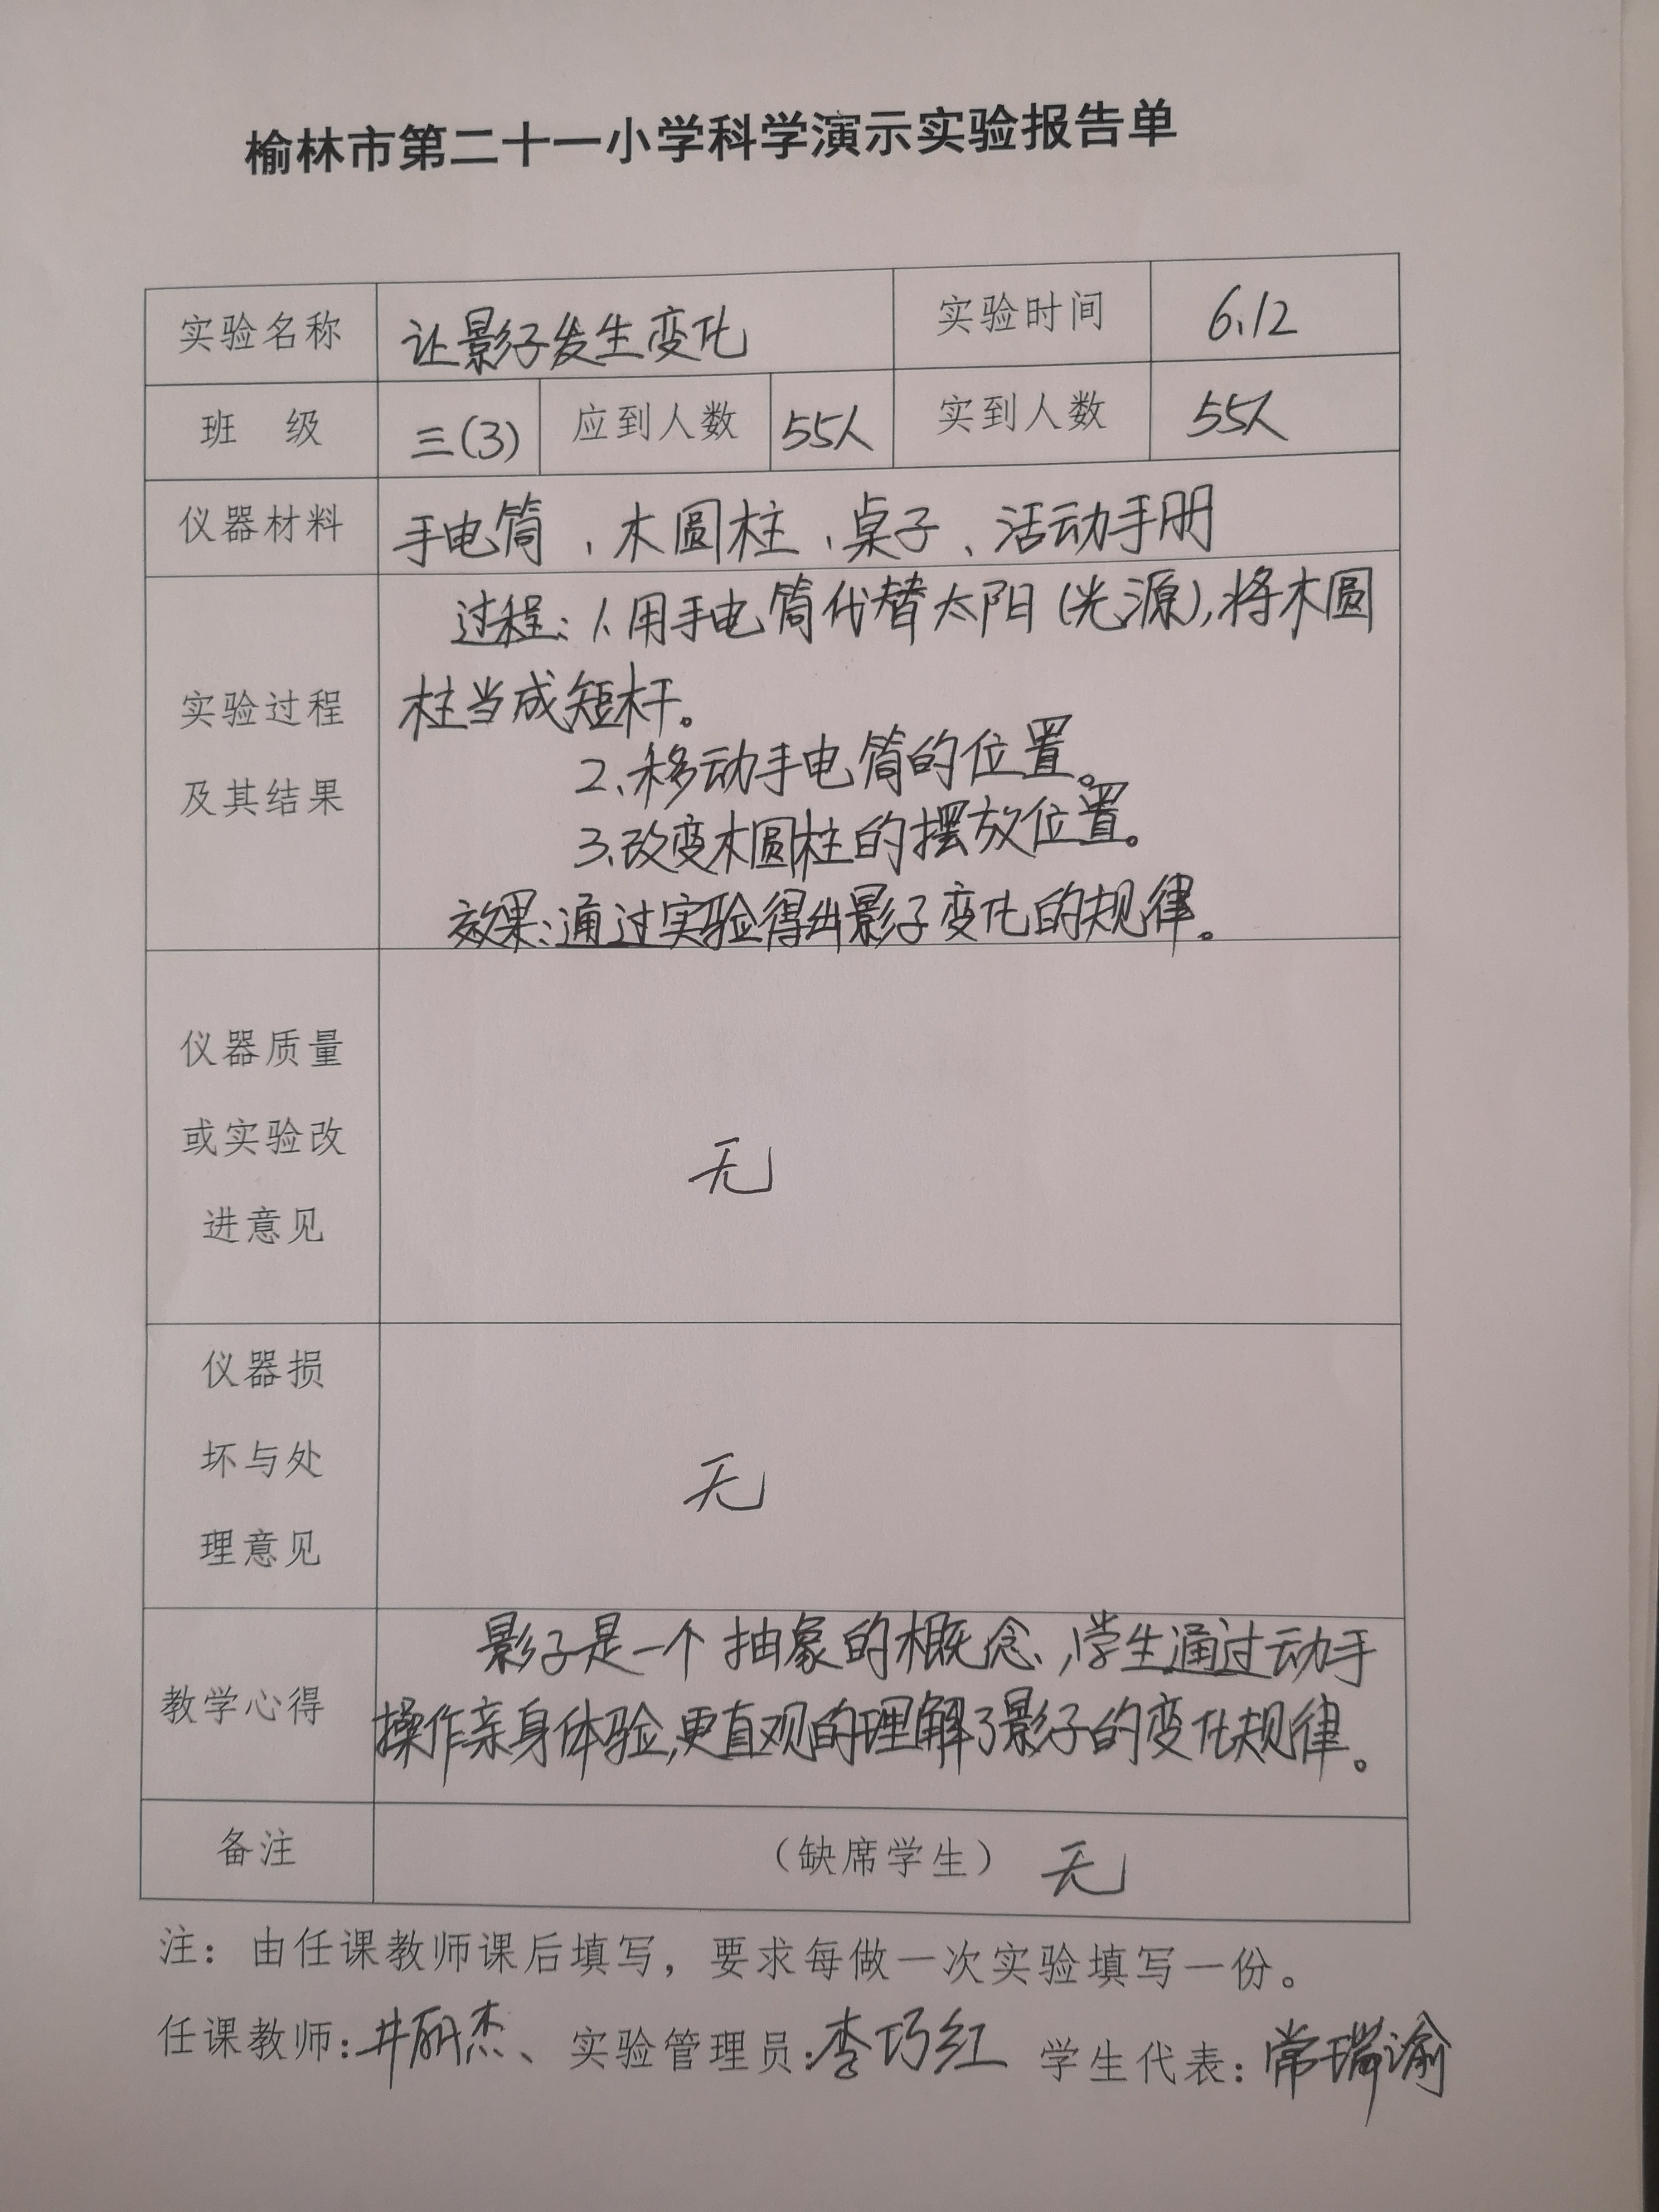 榆林市第二十一小学科学演示实验报告单
实验名称 让影子发生变化 实验时间 6.12
班 级 三(3) 应到人数 55人 实到人数 55人
仪器材料 手电筒、木圆柱、桌子、活动手册
过程:1.用手电筒代替太阳(光源),将木圆
实验过程 柱当成短杆。
2.移动手电筒的位置。
及其结果
3.改变木圆柱的摆放位置。
效果:通过实验得出影子变化的规律。
仪器质量
或实验改 无
进意见
仪器损
坏与处 无
理意见
影子是一个抽象的概念,学生通过动手
教学心得
操作亲身体验,更直观的理解了影子的变化规律。
备注 （缺席学生） 无
注：由任课教师课后填写，要求每做一次实验填写一份。
任课教师:井丽杰、实验管理员:李巧红 学生代表:常瑞谕